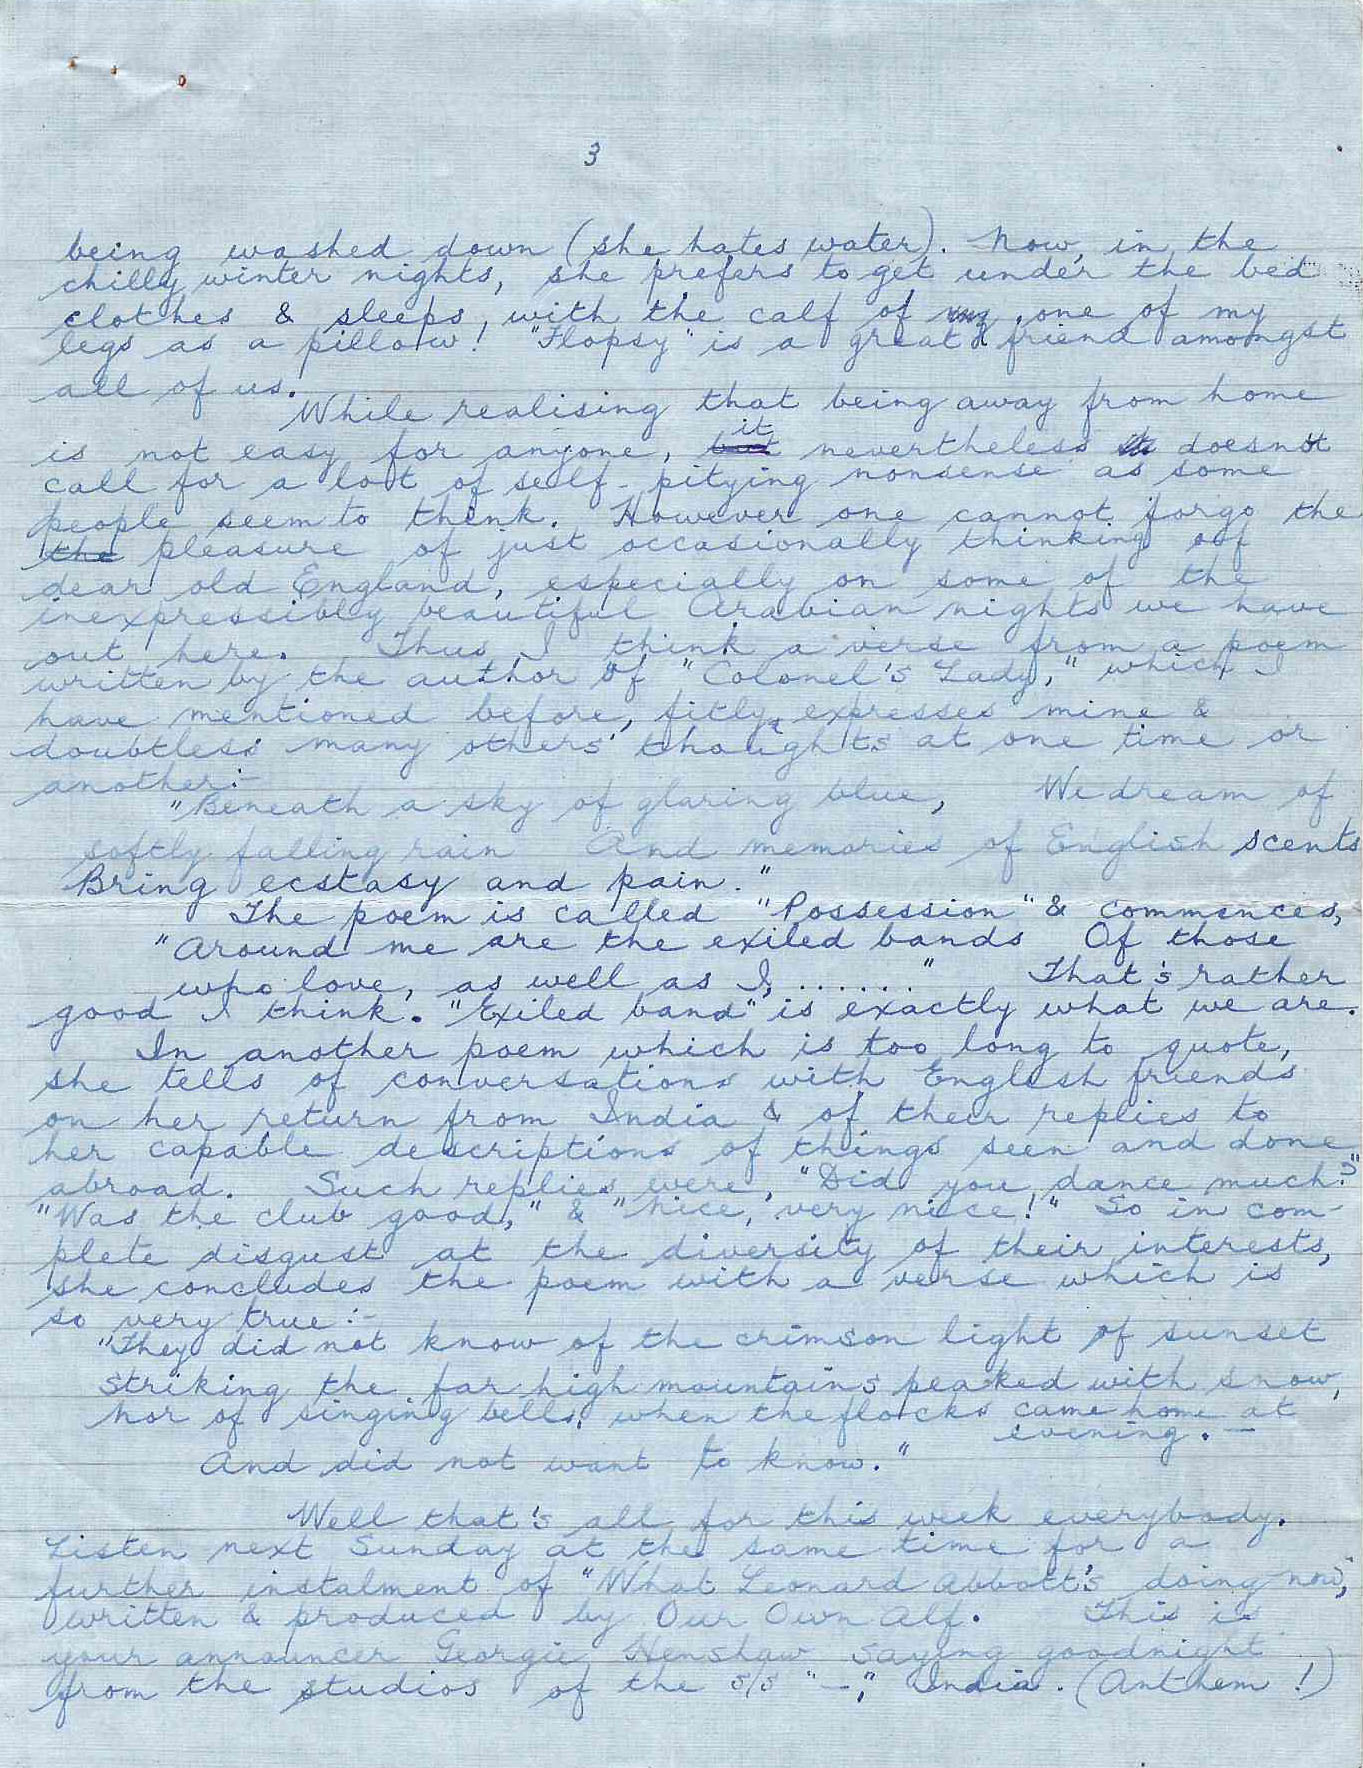 3
being washed down (she hates water). Now, in the
chilly winter nights, she prefers to get under the bed
clothes & sleeps, with the calf of my, one of my
legs as a pillow! "Flopsy" is a great friend amongst
all of us.
While realising that being away from home
is not easy for anyone, but it nevertheless doesn't
call for a lot of self-pitying nonsense as some
people seem to think. However one cannot forgo the
the pleasure of just occasionally thinking of
dear old England, especially on some of the
inexpressibly beautiful Arabian nights we have
out here. Thus I think a verse from a poem
written by the author of "Colonel's Lady," which I
have mentioned before, fitly expresses mine &
doubtless many others' thoughts at one time or
another:-
"Beneath a sky of glaring blue, We dream of
softly falling rain And memories of English scents
Bring ecstasy and pain."
The poem is called "Possession" & commences,
"Around me are the exiled bands Of those
who love, as well as I, ......" That's rather
good I think. "Exiled band" is exactly what we are.
In another poem which is too long to quote,
she tells of conversations with English friends
on her return from India & of their replies to
her capable descriptions of things seen and done
abroad. Such replies were, "Did you dance much?"
"Was the club good," & "Nice, very nice!" So in com-
plete disgust at the diversity of their interests,
she concludes the poem with a verse which is
so very true:-
"They did not know of the crimson light of sunset
Striking the far high mountains peaked with snow,
Nor of singing bells, when the flocks came home at
evening. —
And did not want to know."
Well that's all for this week everybody.
Listen next Sunday at the same time for a
further instalment of "What Leonard Abbott's doing now",
written & produced by Our Own Alf. This is
your announcer Georgie Henshaw saying goodnight
from the studios of the S/S "—", India. (Anthem!)